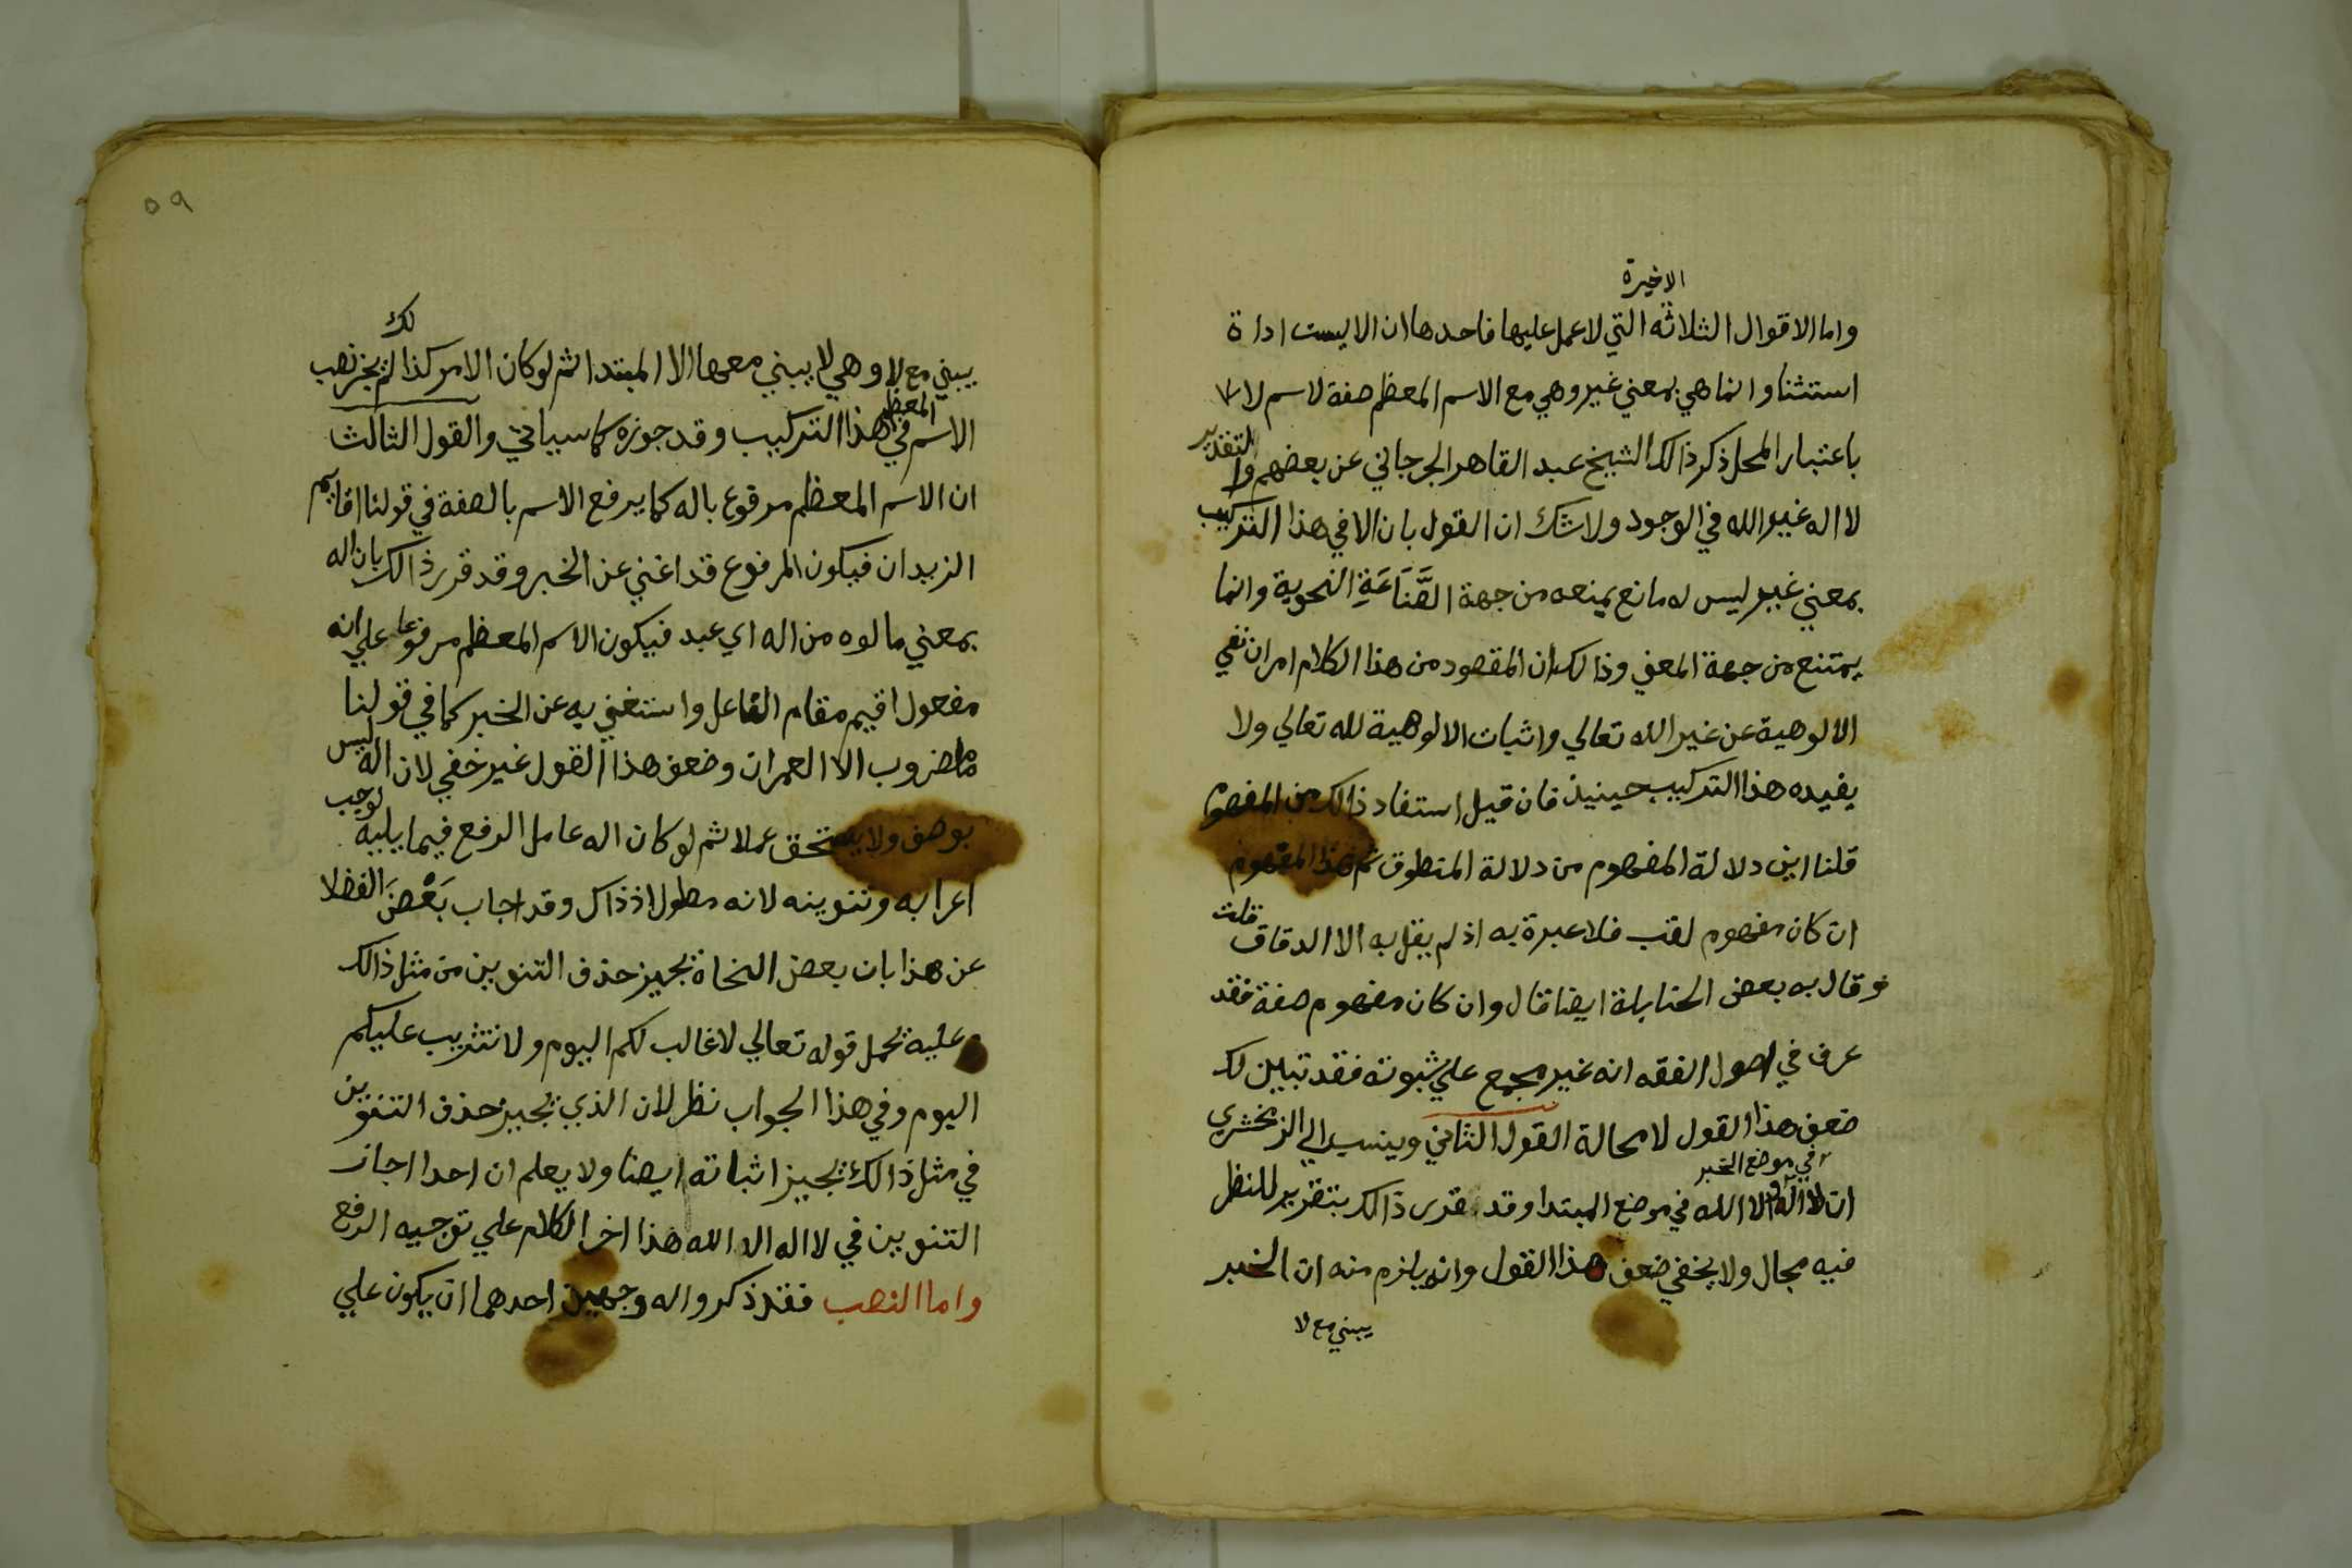 الاخيرة
واما الاقوال الثلاثه التي لا عمل عليها فاحدها ان الا ليست اداة
استثنا وانما هي بمعني غير وهي مع الاسم المعظم صفة لاسم لا
باعتبار المحل ذكر ذالك الشيخ عبد القاهر الجرجاني عن بعضهم والتقدير
لا اله غير الله في الوجود ولا شك ان القول بان الا في هذا التركيب
بمعني غير ليس له مانع يمنعه من جهة الصَّنَاعَةِ النحوية وانما
يمتنع من جهة المعني وذالك ان المقصود من هذا الكلام امران نفي
الالوهية عن غير الله تعالي واثبات الالوهية لله تعالي ولا
يفيده هذا التركيب حينيذ فان قيل استفاد ذالك من المفهوم
قلنا اين دلالة المفهوم من دلالة المنطوق ثم هذا المفهوم
ان كان مفهوم لقب فلا عبرة به اذ لم يقل به الا الدقاق قلت
وقال به بعض الحنابلة ايضا قال وان كان مفهوم صفة فقد
عرف في اصول الفقه انه غير مجمع علي ثبوته فقد تبين لك
ضعف هذا القول لا محالة القول الثاني وينسب الي الزمخشري
في موضع الخبر
ان لا اله والا الله في موضع المبتدا وقد قرر ذالك بتقرير للنظر
فيه مجال ولا يخفي ضعف هذا القول وانه يلزم منه ان الخبر
يبني مع لا
٥٩
لك
يبني مع لا وهي لا يبني معها الا المبتدا ثم لو كان الامر كذالك لم يجز نصب
المعظم
الاسم في هذا التركيب وقد جوزه كما سياتي والقول الثالث
ان الاسم المعظم مرفوع باله كما يرفع الاسم بالصفة في قولنا اقايم
الزيدان فيكون المرفوع قد اغني عن الخبر وقد قرر ذالك بان اله
بمعني مالوه من اله اي عبد فيكون الاسم المعظم مرفوعا علي انه
مفعول اقيم مقام الفاعل واستغني به عن الخبر كما في قولنا
ما مضروب الا العمران وضعف هذا القول غير خفي لان اله ليس
بوصف ولا يستحق عملا ثم لو كان اله عامل الرفع فيما يليه لوجب
اعرابه وتنوينه لانه مطول اذ ذاك وقد اجاب بَعْضَ الفضلا
عن هذا بان بعض النحاة يجيز حذف التنوين من مثل ذالك
وعليه يحمل قوله تعالي لا غالب لكم اليوم ولا تثريب عليكم
اليوم وفي هذا الجواب نظر لان الذي يجيز حذف التنوين
في مثل ذالك يجيز اثباته ايضا ولا يعلم ان احدا اجاز
التنوين في لا اله الا الله هذا اخر الكلام علي توجيه الرفع
واما النصب فقد ذكروا له وجهين احدهما ان يكون علي